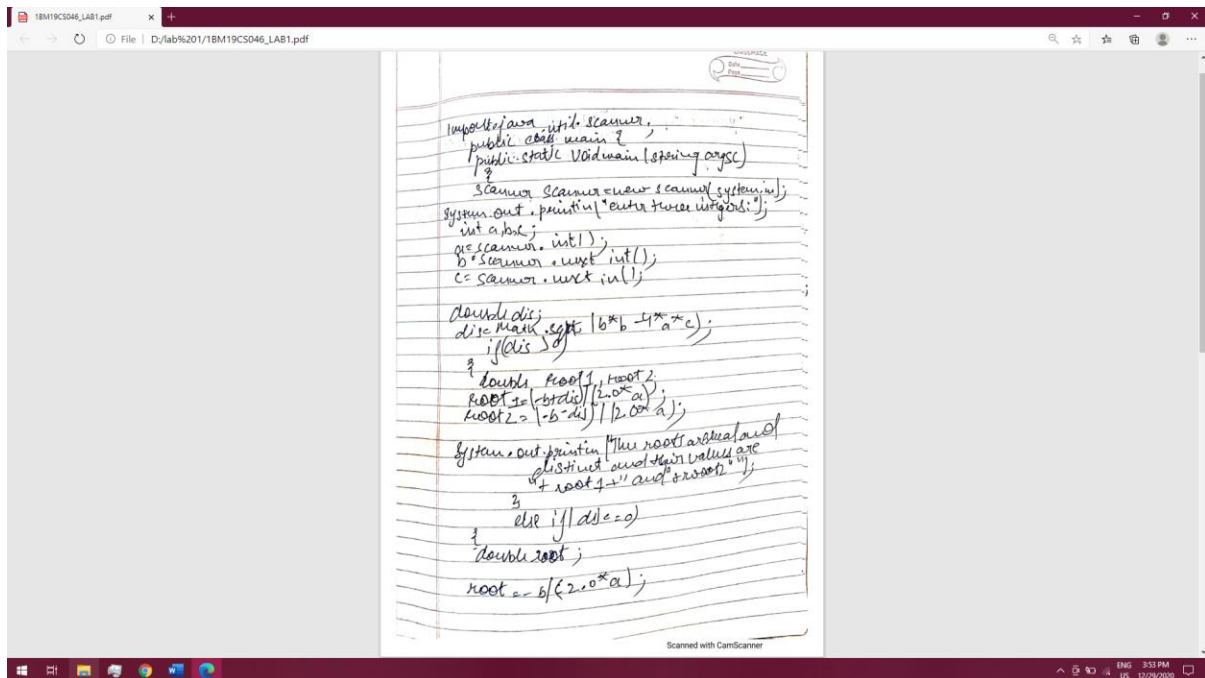 1BM19CS046_LAB1.pdf
File | D:/lab%201/1BM19CS046_LAB1.pdf
classmate
Date
Page
import java util. scanner;
public class main {
public static void main (string args()
{
scanner scanner = new scanner(system.in);
system.out.println("enter three integers:");
int a,b,c;
a= scanner. int();
b= scanner. next int();
c= scanner. next in();
double dis;
dis= math.sqrt (b*b -4*a*c);
if(dis >0)
{
double root1, root 2;
root 1=(-b+dis)/(2.0*a);
root2 = (-b-dis)/(2.0*a);
system.out.println("The roots are real and
distinct and their values are
"+ root 1 +" and"+root2" ");
}
else if(dis==0)
{
double root;
root =- b/(2.0*a);
Scanned with CamScanner
ENG
US
3:53 PM
12/29/2020